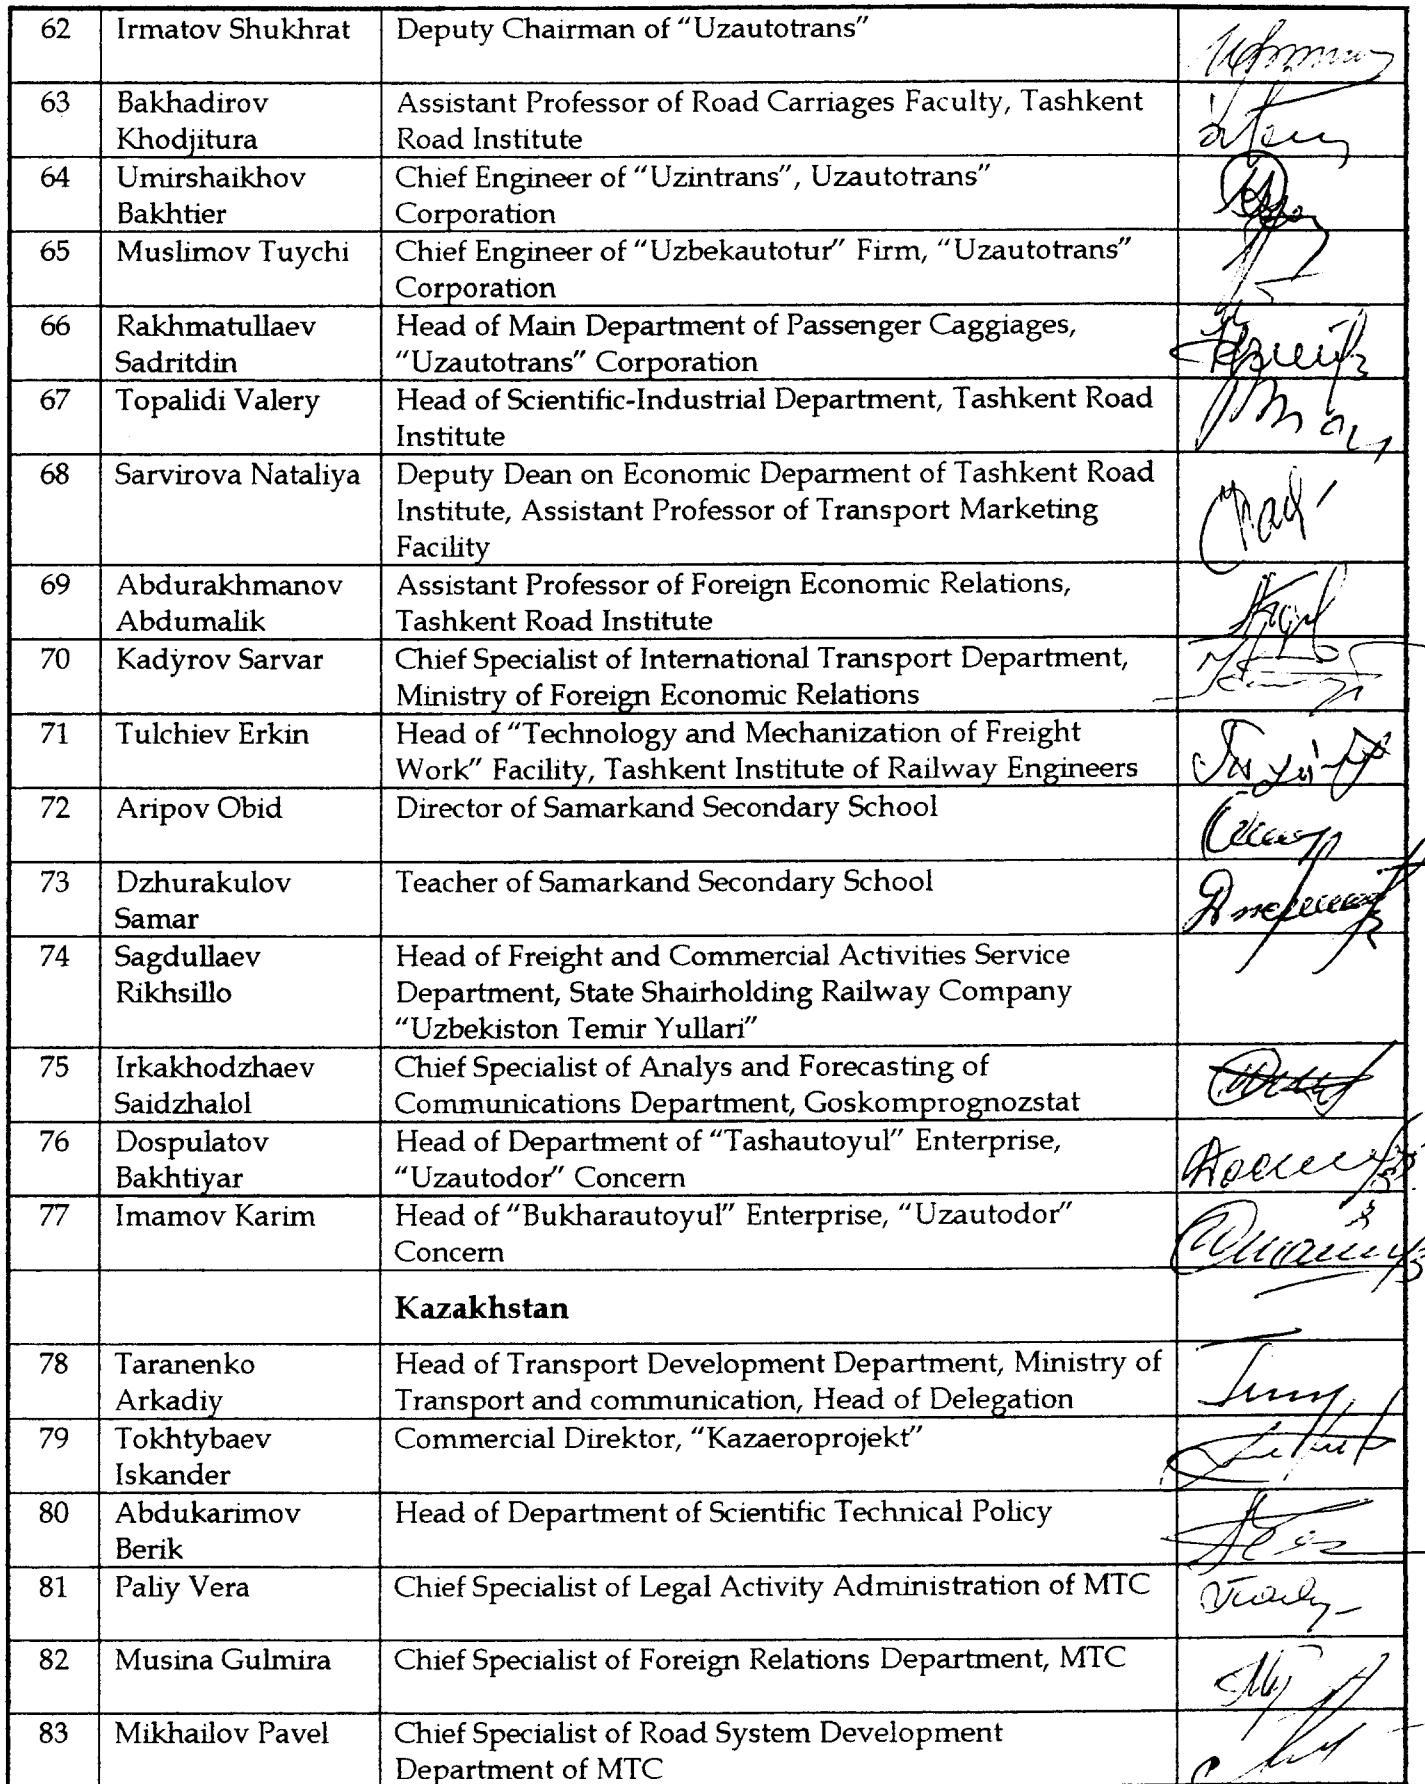 62 Irmatov Shukhrat Deputy Chairman of "Uzautotrans"
63 Bakhadirov Assistant Professor of Road Carriages Faculty, Tashkent
Khodjitura Road Institute
64 Umirshaikhov Chief Engineer of "Uzintrans", Uzautotrans"
Bakhtier Corporation
65 Muslimov Tuychi Chief Engineer of "Uzbekautotur" Firm, "Uzautotrans"
Corporation
66 Rakhmatullaev Head of Main Department of Passenger Caggiages,
Sadritdin "Uzautotrans" Corporation
67 Topalidi Valery Head of Scientific-Industrial Department, Tashkent Road
Institute
68 Sarvirova Nataliya Deputy Dean on Economic Deparment of Tashkent Road
Institute, Assistant Professor of Transport Marketing
Facility
69 Abdurakhmanov Assistant Professor of Foreign Economic Relations,
Abdumalik Tashkent Road Institute
70 Kadyrov Sarvar Chief Specialist of International Transport Department,
Ministry of Foreign Economic Relations
71 Tulchiev Erkin Head of "Technology and Mechanization of Freight
Work" Facility, Tashkent Institute of Railway Engineers
72 Aripov Obid Director of Samarkand Secondary School
73 Dzhurakulov Teacher of Samarkand Secondary School
Samar
74 Sagdullaev Head of Freight and Commercial Activities Service
Rikhsillo Department, State Shairholding Railway Company
"Uzbekiston Temir Yullari"
75 Irkakhodzhaev Chief Specialist of Analys and Forecasting of
Saidzhalol Communications Department, Goskomprognozstat
76 Dospulatov Head of Department of "Tashautoyul" Enterprise,
Bakhtiyar "Uzautodor" Concern
77 Imamov Karim Head of "Bukharautoyul" Enterprise, "Uzautodor"
Concern
Kazakhstan
78 Taranenko Head of Transport Development Department, Ministry of
Arkadiy Transport and communication, Head of Delegation
79 Tokhtybaev Commercial Direktor, "Kazaeroprojekt"
Iskander
80 Abdukarimov Head of Department of Scientific Technical Policy
Berik
81 Paliy Vera Chief Specialist of Legal Activity Administration of MTC
82 Musina Gulmira Chief Specialist of Foreign Relations Department, MTC
83 Mikhailov Pavel Chief Specialist of Road System Development
Department of MTC